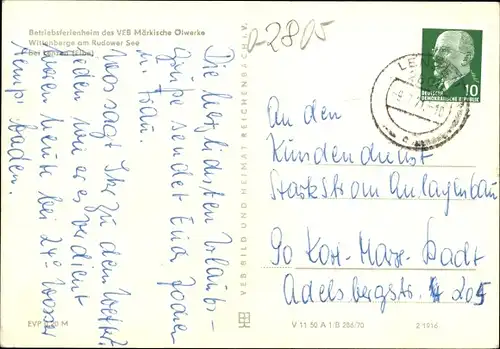 Betriebsferienheim des VEB Märkische Ölwerke
Wittenberge am Rudower See
bei Lenzen (Elbe)
D-2805
Die herzlichsten Urlaubs-
grüße sendet Euch
u. Frau.
Was sagt Ihr zu dem Wetter.
jeden wie er es verdient
waren heute bei 24° Wasser
temp. baden.
VEB BILD UND HEIMAT REICHENBACH i. V.
LENZ
10
DEUTSCHE
DEMOKRATISCHE REPUBLIK
An den
Kundendienst
Starkstrom Anlagenbau
90 Karl-Marx-Stadt
Adelsbergstr. 205
EVP M
V 11 50 A 1 B 286/70
2/1916